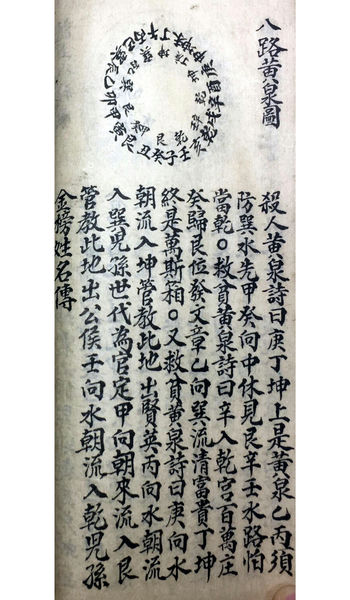 八路黃泉圖
壬子癸丑艮寅甲卯乙辰巽巳丙午丁未坤申庚酉辛戌乾亥
殺人黃泉詩曰庚丁坤上是黃泉乙丙須
防巽水先甲癸向中休見艮辛壬水路怕
當乾。救貧黃泉詩曰辛入乾宮百萬庄
癸歸艮位發文章乙向巽流清富貴丁坤
終是萬斯箱。又救貧黃泉詩曰庚向水
朝流入坤管教此地出賢英丙向水朝流
入巽兒孫世代為官定甲向朝來流入艮
管教此地出公侯壬向水朝流入乾兒孫
金榜姓名傳